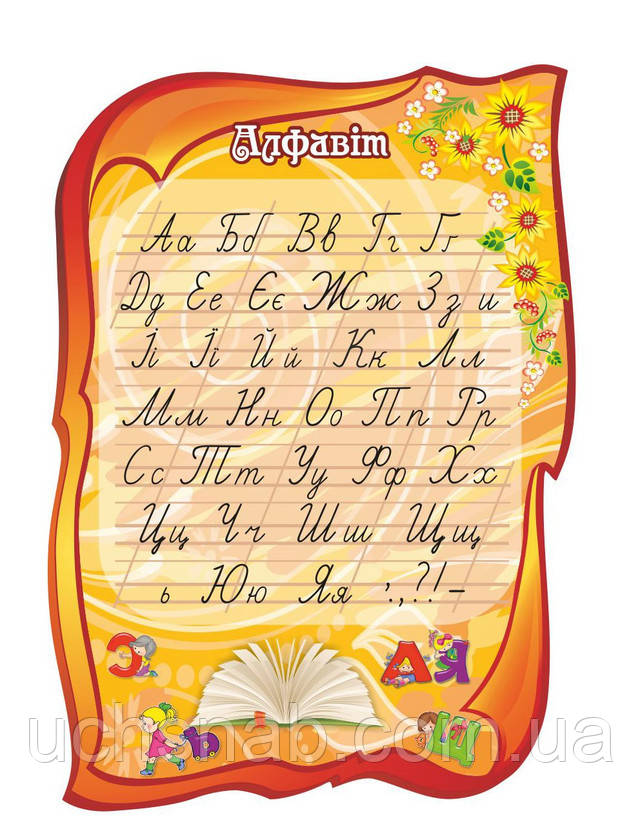 Алфавіт
Аа Бб Вв Гг Ґґ
Дд Ее Єє Жж Зз и
Іі Її Йй Кк Лл
Мм Нн Оо Пп Рр
Сс Тт Уу Фф Хх
Цц Чч Шш Щщ
ь Юю Яя ’.,?!–
З А Я
Ь Щ
uchsnab.com.ua